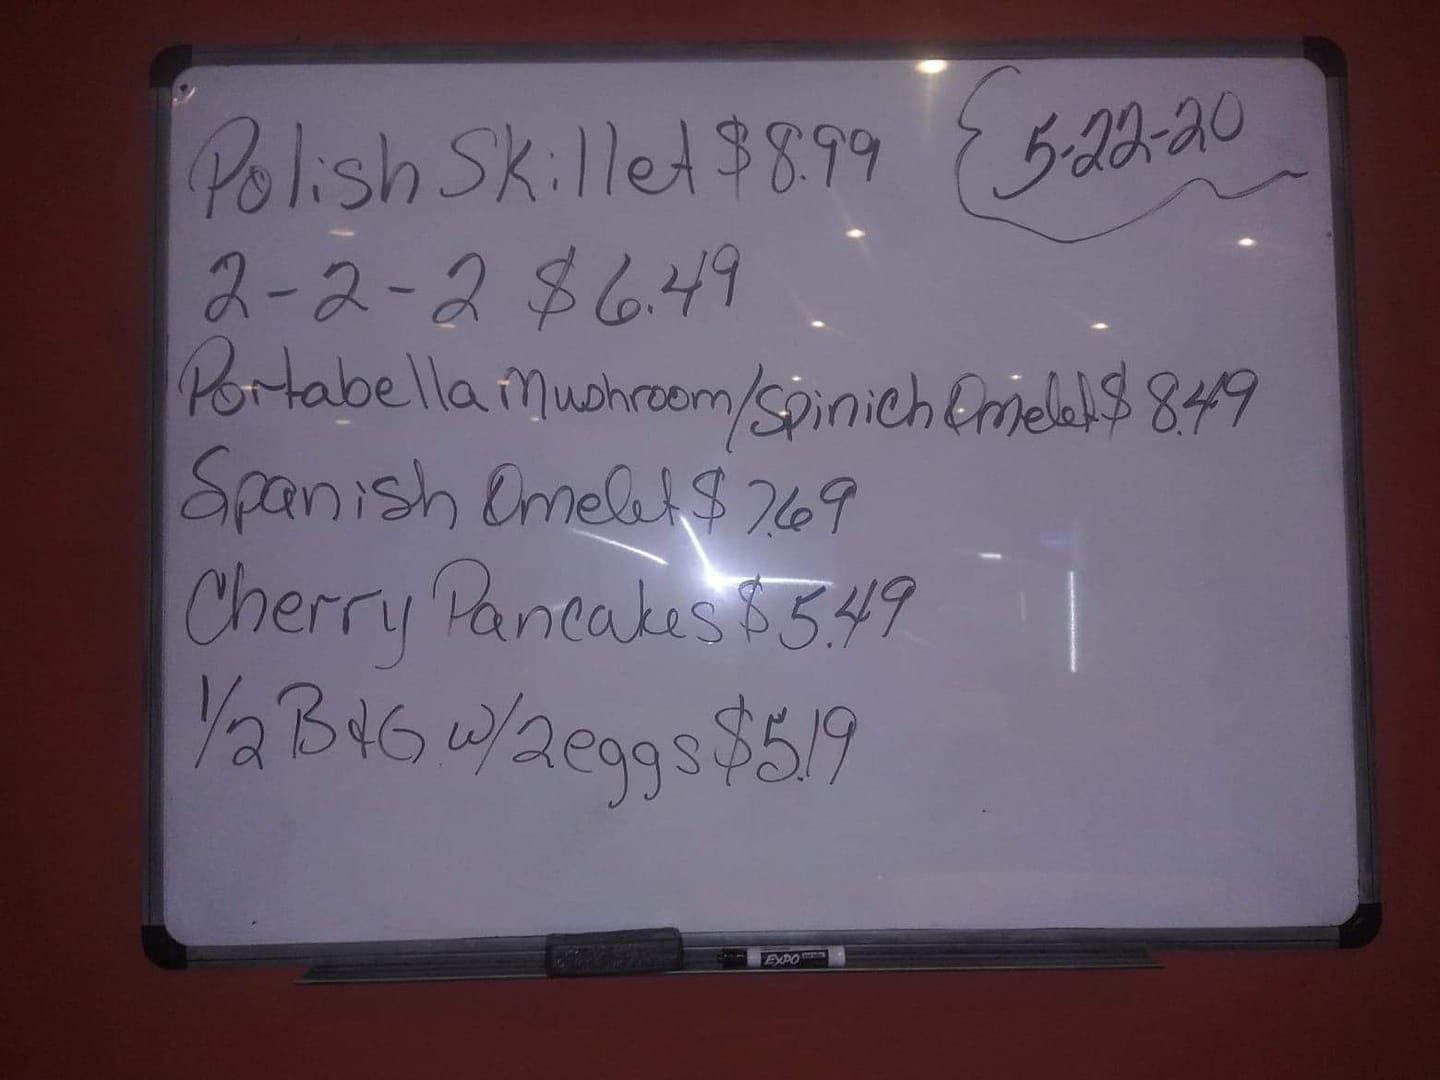 Polish Skillet $8.99
5-22-20
2-2-2 $6.49
Portabella Mushroom/Spinich Omelet $8.49
Spanish Omelet $7.69
Cherry Pancakes $5.49
1/2 B&G w/2eggs $5.19
EXPO